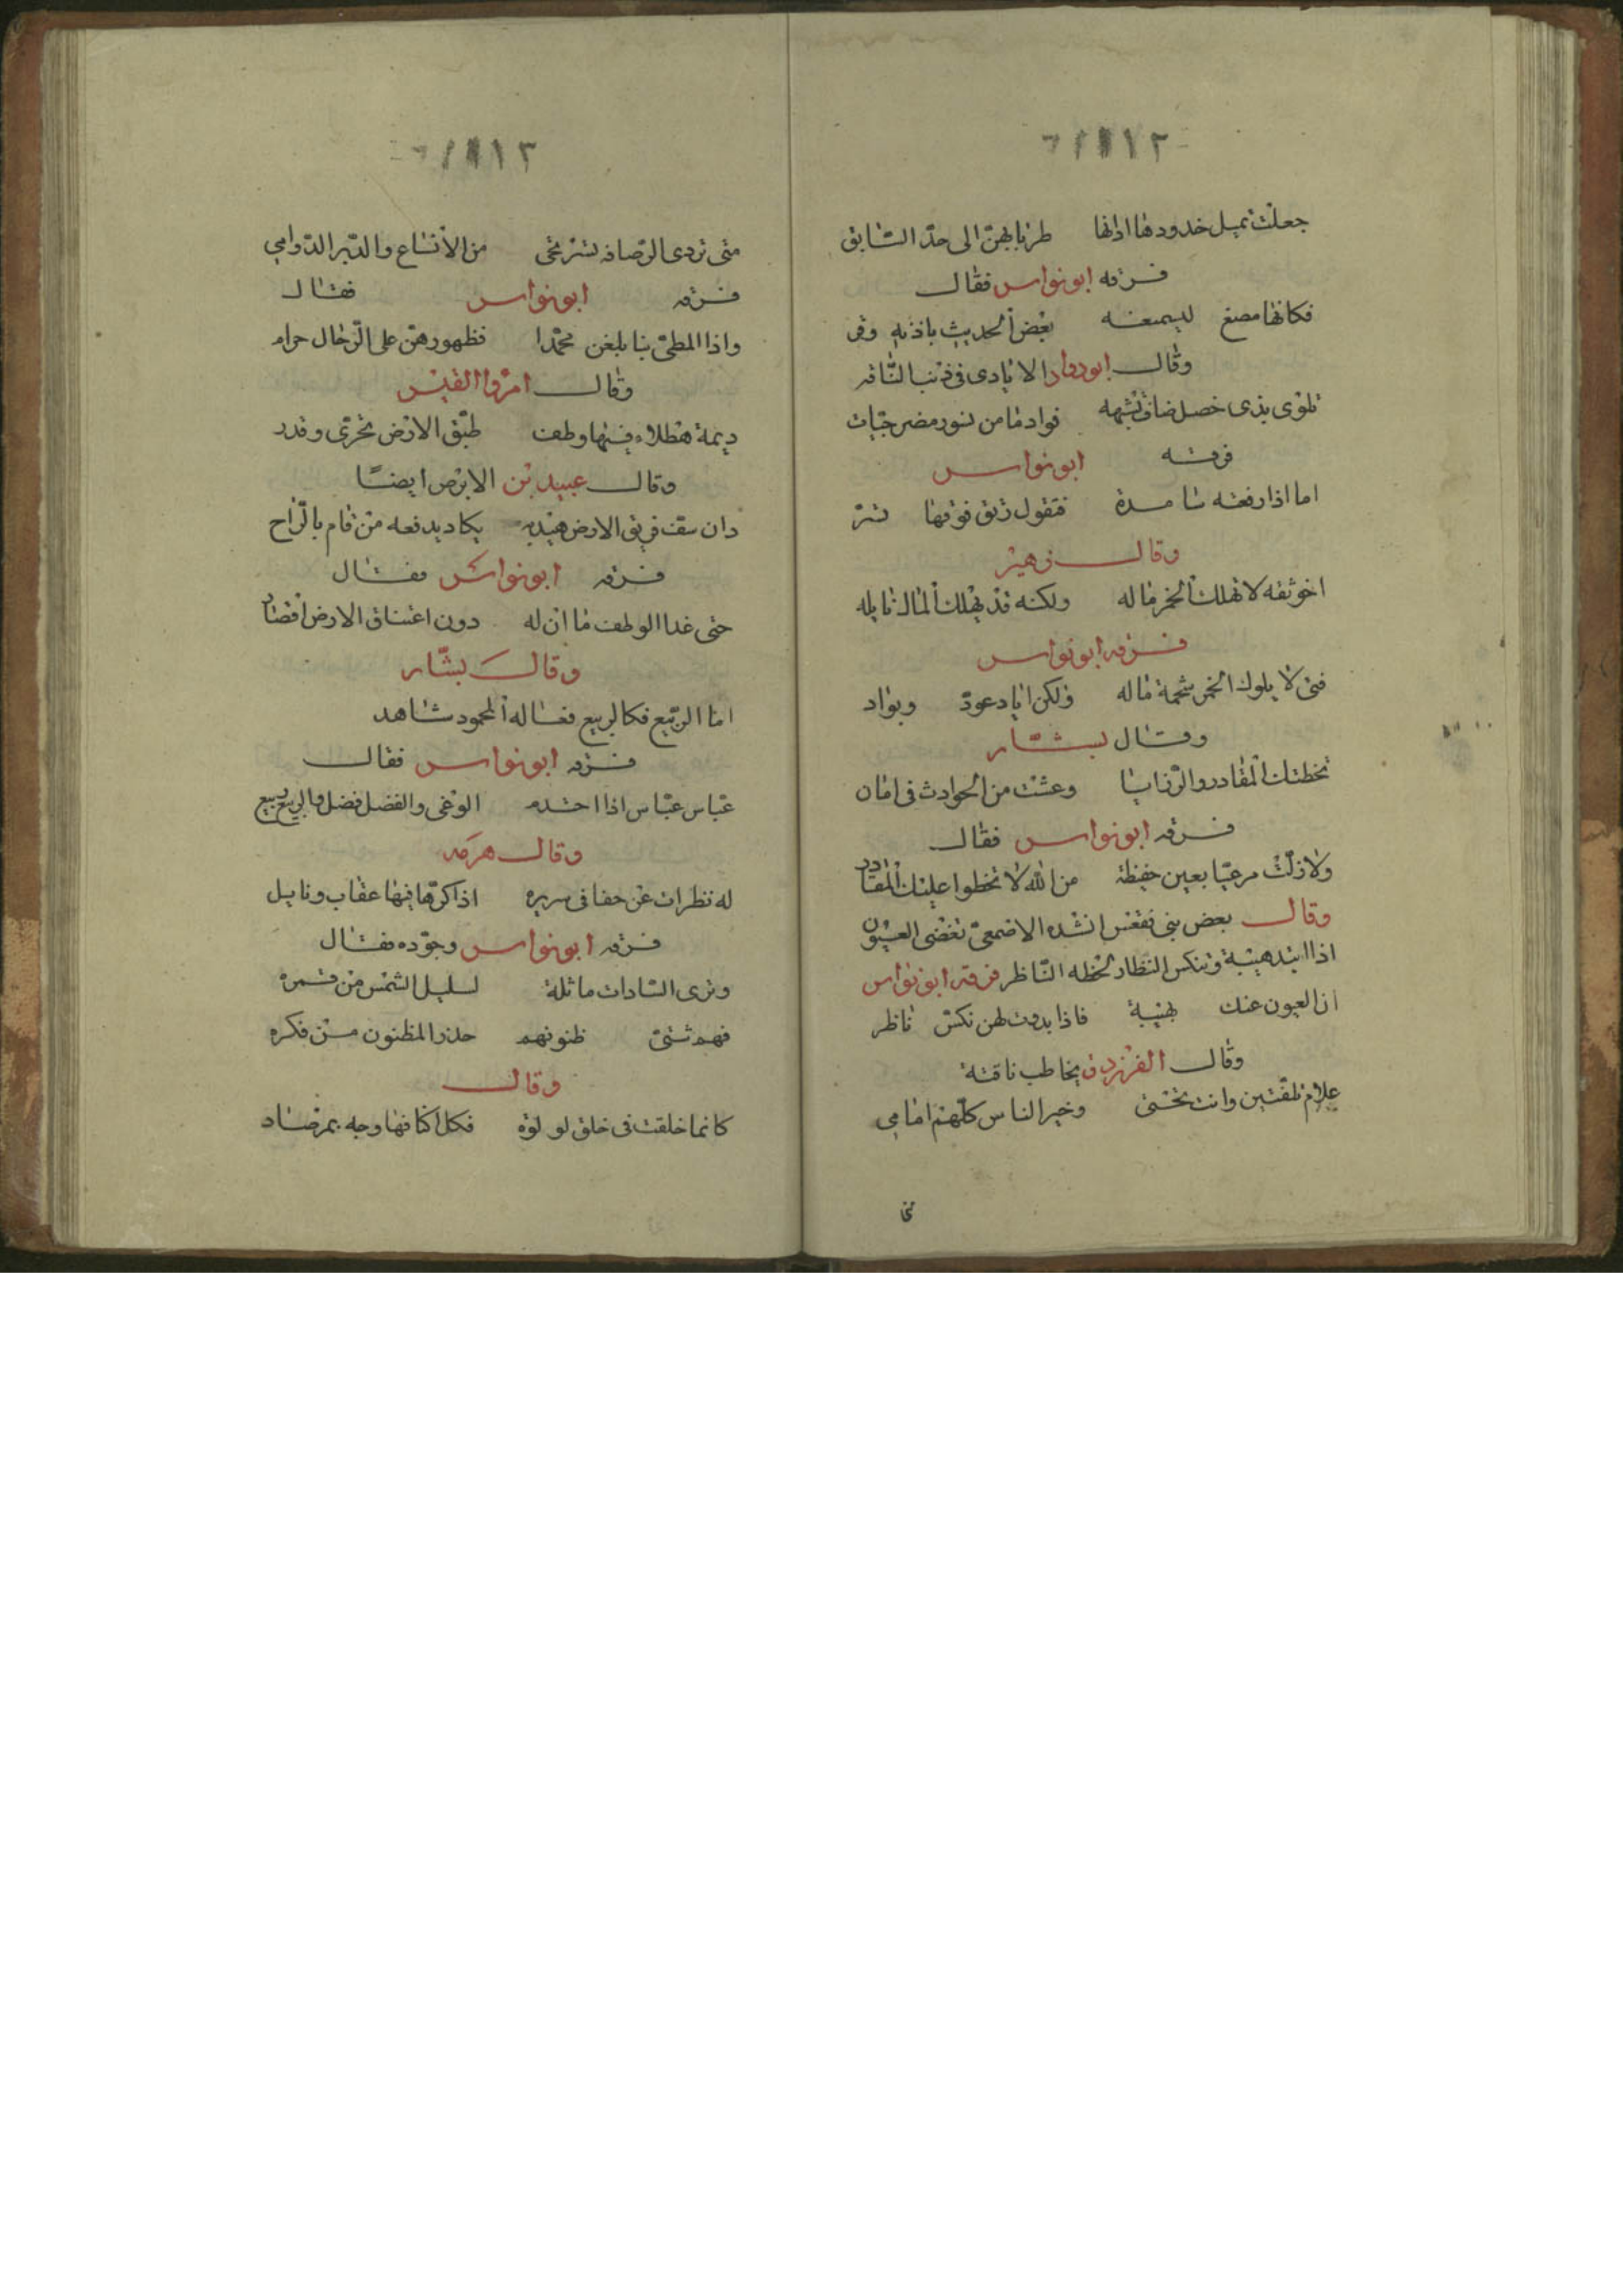 جعلت تميل خدودها اذانها طربا بهن الى حد السابق
فسرقه ابو نواس فقال
فكانها مصغ ليسمعه بعض الحديث باذنه وقر
وقال ابو دواد الايادى فى ذنب الناقه
تلوى بذى خصل ضاف تشبهه قوادما من نسور مضرحيات
فسرقه ابو نواس
اما اذا رفعته شامدة فتقول رنق فوقها نسر
وقال زهير
اخو ثقه لا تهلك الخمر ماله ولكنه قد يهلك المال نايله
فسرقه ابو نواس
فتى لا يلوك الخمر شحمة ماله ولكن اياد عود وبواد
وقال بشار
تخطتك المقادر والرزايا وعشت من الحوادث فى امان
فسرقه ابو نواس فقال
ولا زلت مرعيا بعين حفيظة من الله لا تخطوا عليك المقادر
وقال بعض بنى فقعس انشده الاصمعى تغضى العيون
اذا ابتد هيبة وينكس النظار لحظه الناظر فسرقه ابو نواس
ان العيون عنك بهيبة فاذا بدوت لهن نكس ناظر
وقال الفرزدق يخاطب ناقته
علام تلفتين وانت تحتى وخير الناس كلهم امامى
متى
متى تردى الرصافه تستريحى من الانساع والدبر الدوامى
فسرقه ابو نواس فقال
واذا المطى بنا بلغن محمدا فظهورهن على الرحال حرام
وقال امرؤ القيس
ديمة هطلاء فيها وطف طبق الارض تحرى وتدر
وقال عبيد بن الابرص ايضا
دان سف فويق الارض هيدبه يكاد يدفعه من قام بالراح
فسرقه ابو نواس فقال
حتى غدا الوطف ما ان له دون اعتناق الارض اقصار
وقال بشار
اما الربيع فكالربيع فعاله المحمود شاهد
فسرقه ابو نواس فقال
عباس عباس اذا احتدم الوغى والفضل فضل والربيع ربيع
وقال هرمه
له نظرات عن حفافى سريره اذا كرها فيها عقاب ونايل
فسرقه ابو نواس وجوده فقال
وترى السادات ماثلة لسليل الشمس من قمره
فهم شتى ظنونهم حذر المظنون من فكره
وقال
كانما خلقت فى خلق لولوة فكل اكنافها وجه بمرصاد